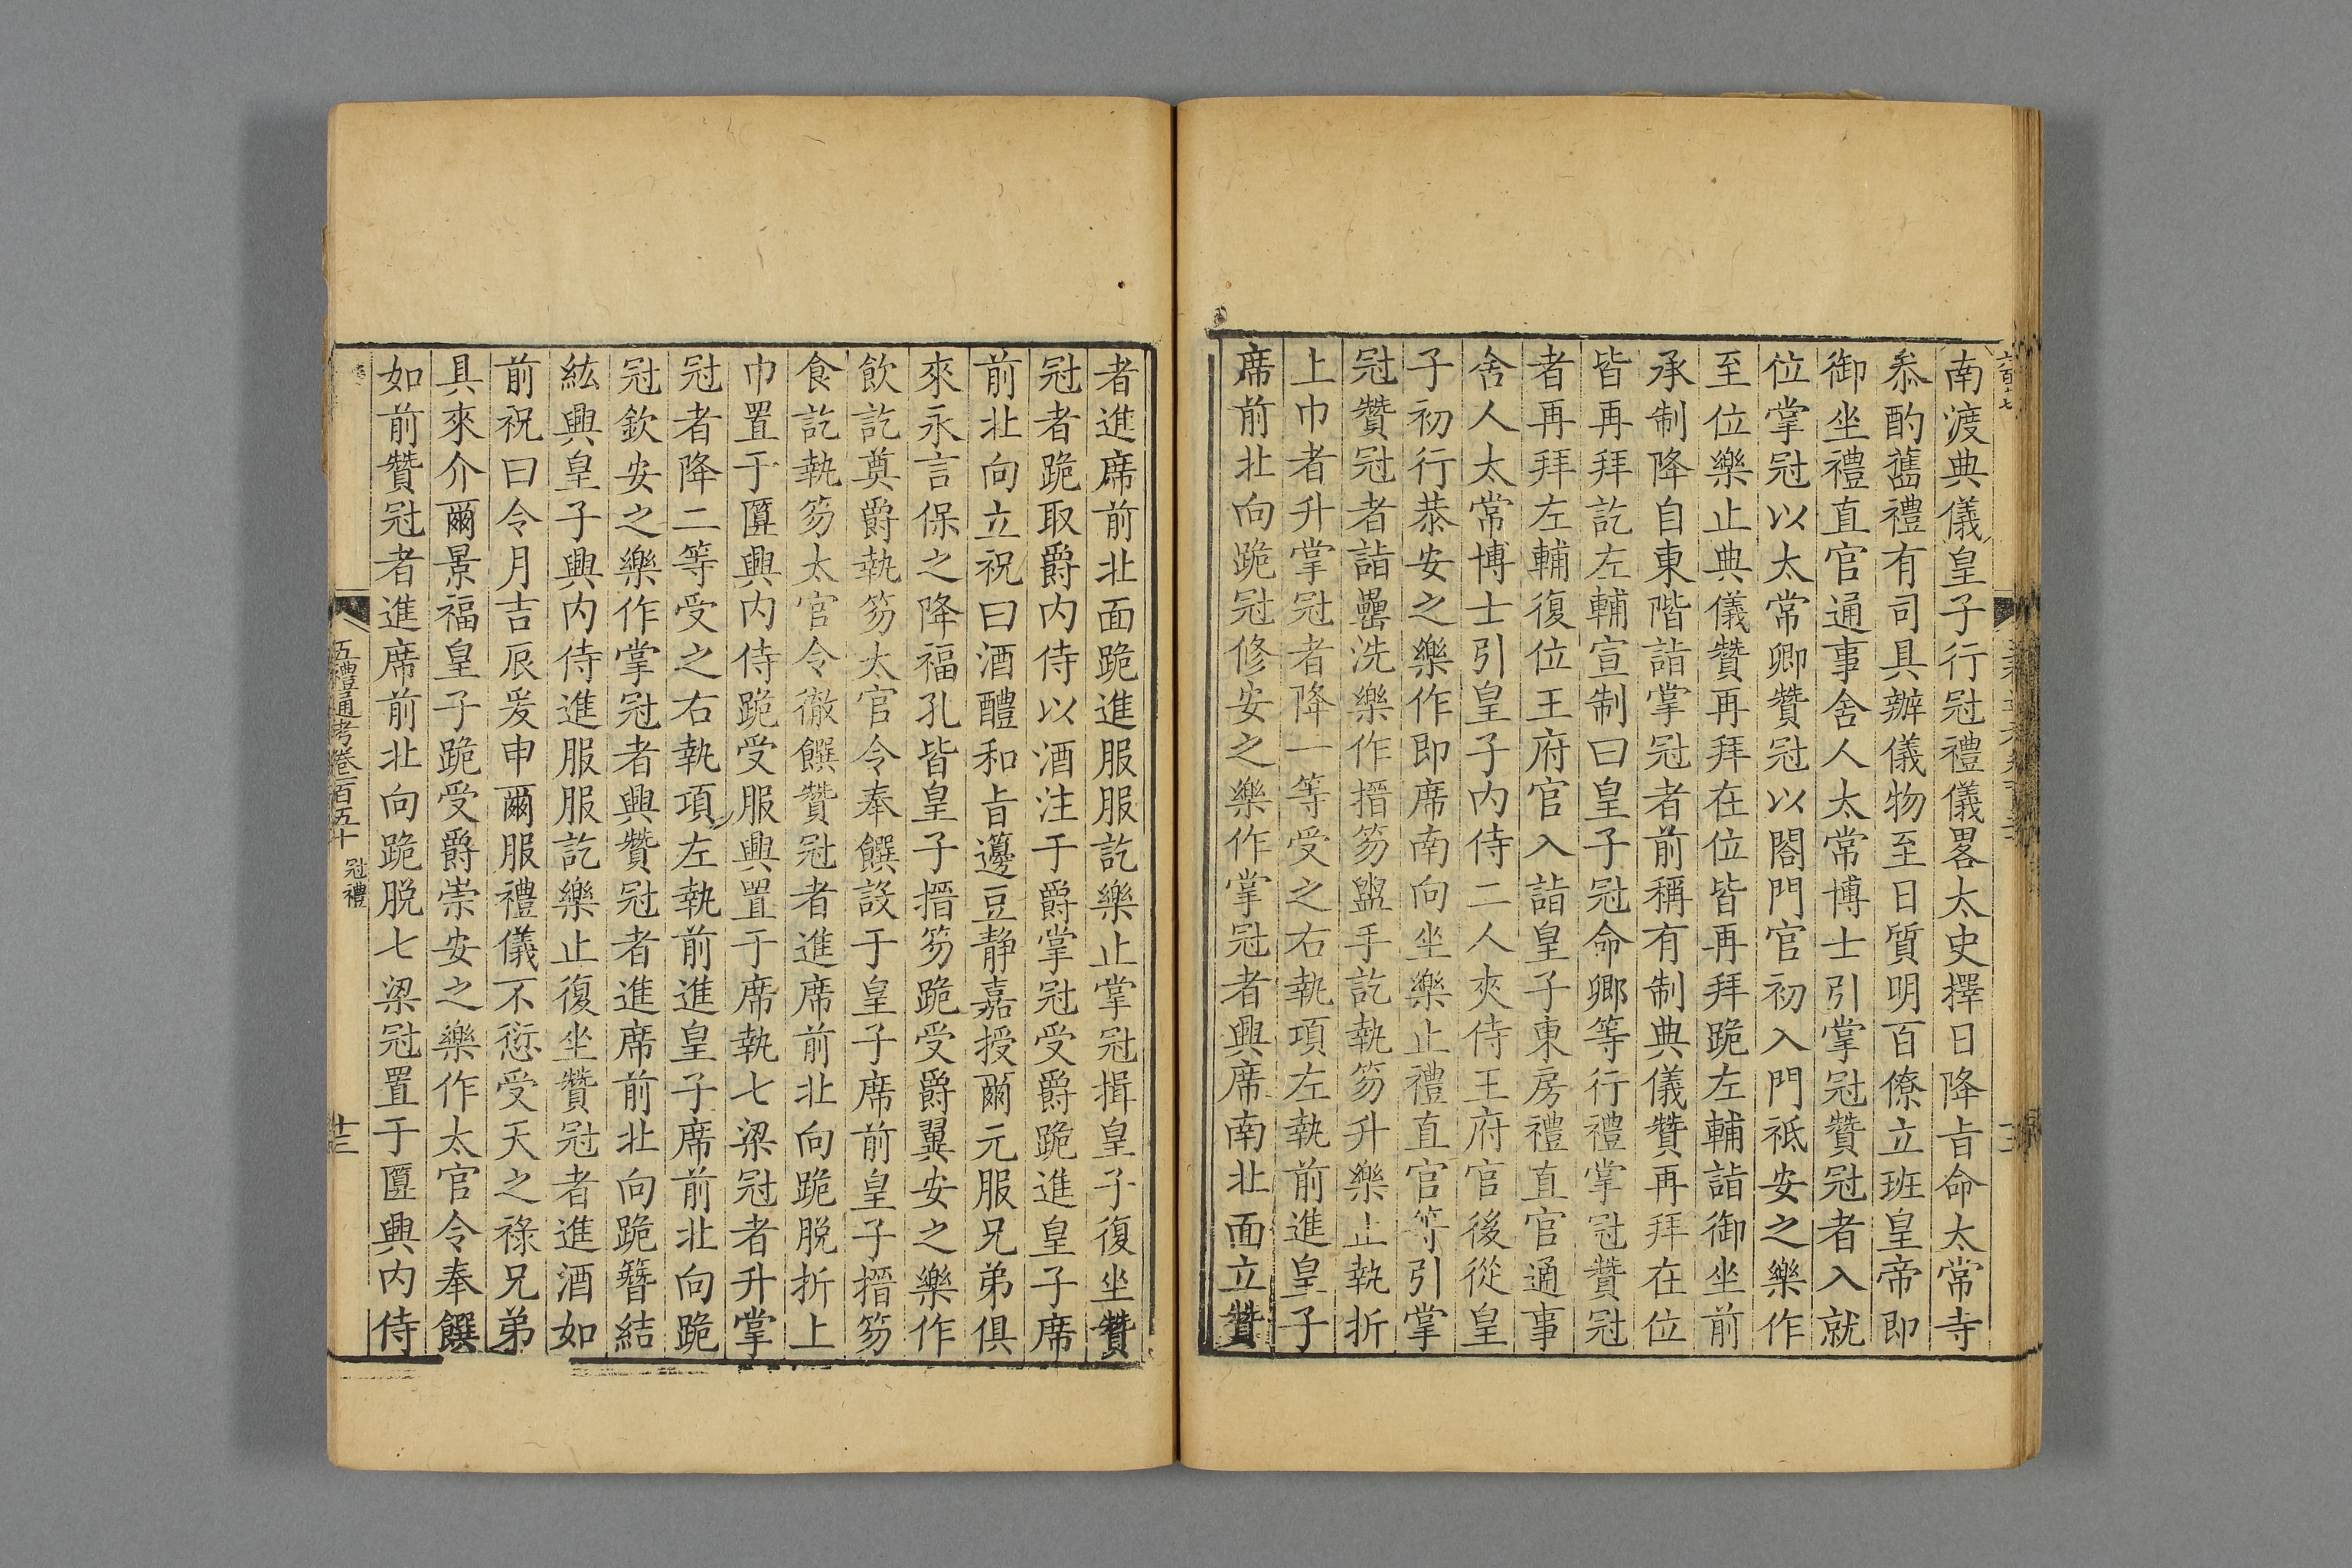 南渡典儀皇子行冠禮儀畧太史擇日降旨命太常寺
叅酌舊禮有司具辦儀物至日質明百僚立班皇帝即
御坐禮直官通事舍人太常博士引掌冠贊冠者入就
位掌冠以太常卿贊冠以閤門官初入門祗安之樂作
至位樂止典儀贊再拜在位皆再拜跪左輔詣御坐前
承制降自東階詣掌冠者前稱有制典儀贊再拜在位
皆再拜訖左輔宣制曰皇子冠命卿等行禮掌冠贊冠
者再拜左輔復位王府官入詣皇子東房禮直官通事
舍人太常博士引皇子內侍二人夾侍王府官後從皇
子初行恭安之樂作即席南向坐樂止禮直官等引掌
冠贊冠者詣罍洗樂作搢笏盥手訖執笏升樂止執折
上巾者升掌冠者降一等受之右執項左執前進皇子
席前北向跪冠修安之樂作掌冠者興席南北面立贊
者進席前北面跪進服服訖樂止掌冠揖皇子復坐贊
冠者跪取爵內侍以酒注于爵掌冠受爵跪進皇子席
前北向立祝曰酒醴和旨籩豆静嘉授爾元服兄弟俱
來永言保之降福孔皆皇子搢笏跪受爵翼安之樂作
飲訖奠爵執笏太官令奉饌設于皇子席前皇子搢笏
食訖執笏太官令徹饌贊冠者進席前北向跪脫折上
巾置于匴興內侍跪受服興置于席執七梁冠者升掌
冠者降二等受之右執項左執前進皇子席前北向跪
冠欽安之樂作掌冠者興贊冠者進席前北向跪簪結
紘興皇子興內侍進服服訖樂止復坐贊冠者進酒如
前祝曰令月吉辰爰申爾服禮儀不愆受天之祿兄弟
具來介爾景福皇子跪受爵崇安之樂作太官令奉饌
如前贊冠者進席前北向跪脫七梁冠置于匴興內侍
五禮通考卷一百五十 冠禮 十三